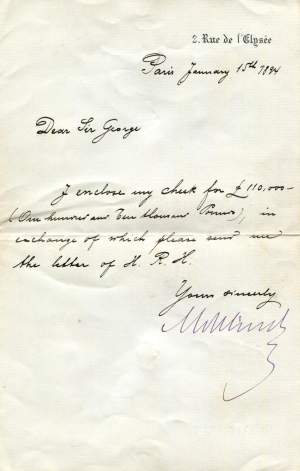 2. Rue de l'Elysée
Paris January 15th 1894
Dear Sir George
I enclose my check for £110,000-
(One hundred and Ten thousand Pounds), in
exchange of which please send me
the letter of H. R. H.
Yours sincerely